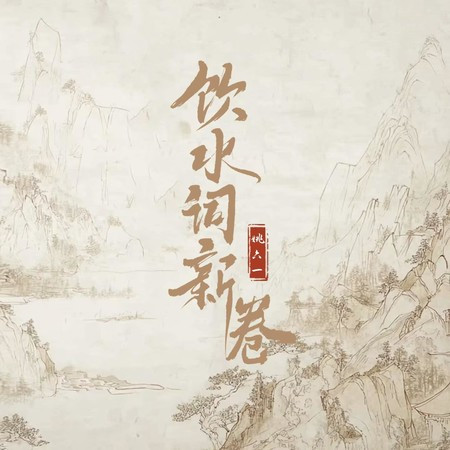 饮水词新卷
姚六一